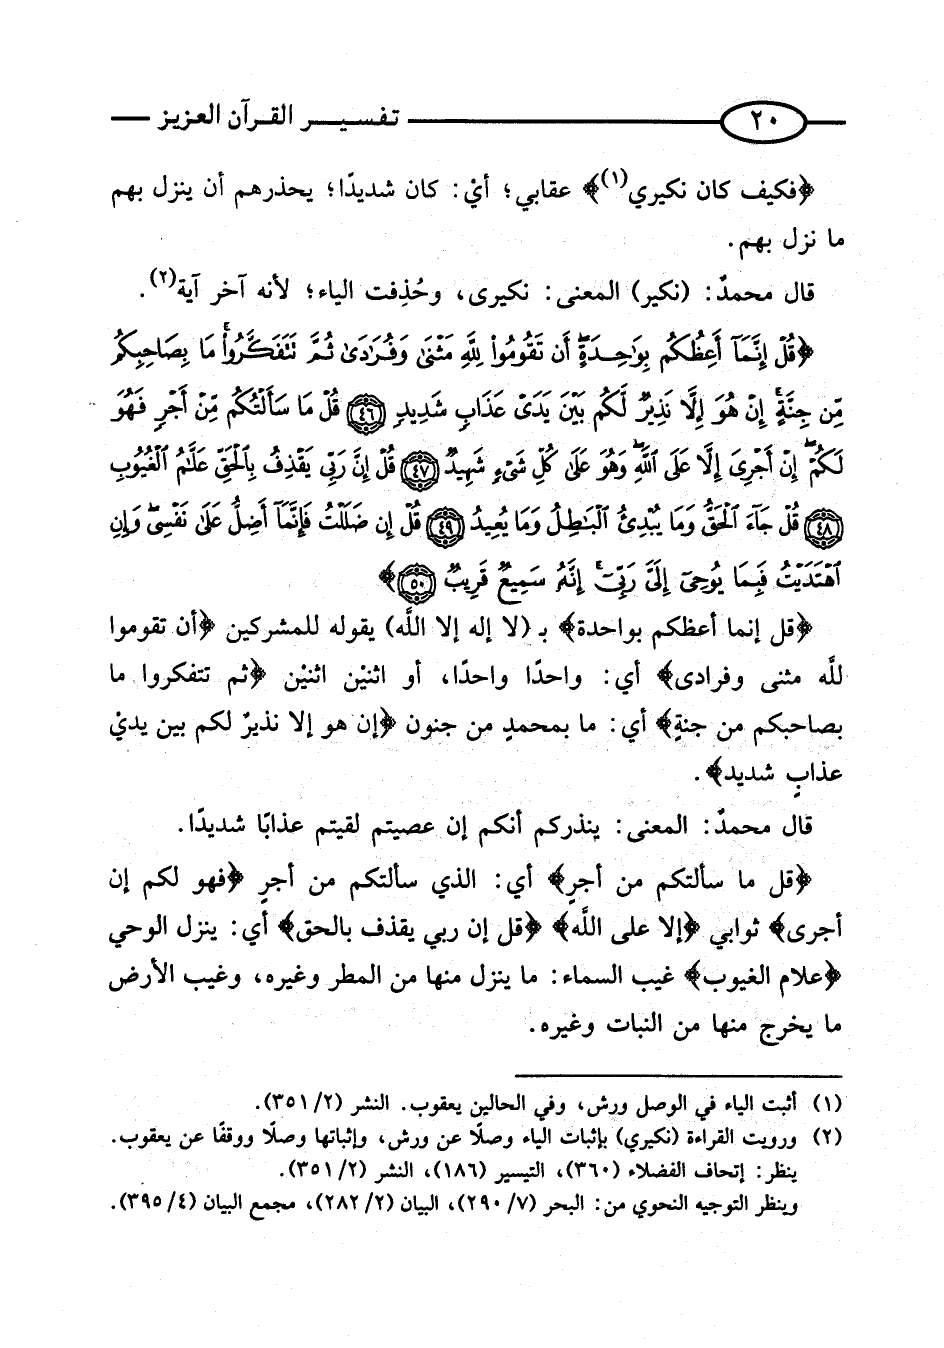 ٢٠ تفسير القرآن العزيز
﴿فكيف كان نكيري(١)﴾ عقابي؛ أيْ: كان شديدًا؛ يحذرهم أن ينزل بهم
ما نزل بهم.
قال محمدٌ: (نكير) المعنى: نكيرى، وحُذِفت الياء؛ لأنه آخر آية(٢).
﴿قُلْ إِنَّمَآ أَعِظُكُم بِوَٰحِدَةٍ ۖ أَن تَقُومُوا۟ لِلَّهِ مَثْنَىٰ وَفُرَٰدَىٰ ثُمَّ تَتَفَكَّرُوا۟ ۚ مَا بِصَاحِبِكُم
مِّن جِنَّةٍ ۚ إِنْ هُوَ إِلَّا نَذِيرٌ لَّكُم بَيْنَ يَدَىْ عَذَابٍ شَدِيدٍ ٤٦ قُلْ مَا سَأَلْتُكُم مِّنْ أَجْرٍ فَهُوَ
لَكُمْ ۖ إِنْ أَجْرِىَ إِلَّا عَلَى ٱللَّهِ ۖ وَهُوَ عَلَىٰ كُلِّ شَىْءٍ شَهِيدٌ ٤٧ قُلْ إِنَّ رَبِّى يَقْذِفُ بِٱلْحَقِّ عَلَّٰمُ ٱلْغُيُوبِ
٤٨ قُلْ جَآءَ ٱلْحَقُّ وَمَا يُبْدِئُ ٱلْبَٰطِلُ وَمَا يُعِيدُ ٤٩ قُلْ إِن ضَلَلْتُ فَإِنَّمَآ أَضِلُّ عَلَىٰ نَفْسِى ۖ وَإِنِ
ٱهْتَدَيْتُ فَبِمَا يُوحِىٓ إِلَىَّ رَبِّىٓ ۚ إِنَّهُۥ سَمِيعٌ قَرِيبٌ ٥٠﴾
﴿قل إنما أعظكم بواحدة﴾ بـ (لا إله إلا اللَّه) يقوله للمشركين ﴿أن تقوموا
للَّه مثنى وفرادى﴾ أي: واحدًا واحدًا، أو اثنيْن اثنيْن ﴿ثم تتفكروا ما
بصاحبكم من جنةٍ﴾ أي: ما بمحمدٍ من جنون ﴿إن هو إلا نذيرٌ لكم بين يديْ
عذابٍ شديد﴾.
قال محمدٌ: المعنى: ينذركم أنكم إن عصيتم لقيتم عذابًا شديدًا.
﴿قل ما سألتكم من أجرٍ﴾ أي: الذي سألتكم من أجرٍ ﴿فهو لكم إن
أجرى﴾ ثوابي ﴿إلا على اللَّه﴾ ﴿قل إن ربي يقذف بالحق﴾ أي: ينزل الوحي
﴿علام الغيوب﴾ غيب السماء: ما ينزل منها من المطر وغيره، وغيب الأرض
ما يخرج منها من النبات وغيره.
(١) أثبت الياء في الوصل ورش، وفي الحالين يعقوب. النشر (٢/ ٣٥١).
(٢) ورويت القراءة (نكيري) بإثبات الياء وصلًا عن ورش، وإثباتها وصلًا ووقفًا عن يعقوب.
ينظر: إتحاف الفضلاء (٣٦٠)، التيسير (١٨٦)، النشر (٢/ ٣٥١).
وينظر التوجيه النحوي من: البحر (٧/ ٢٩٠)، البيان (٢/ ٢٨٢)، مجمع البيان (٤/ ٣٩٥).